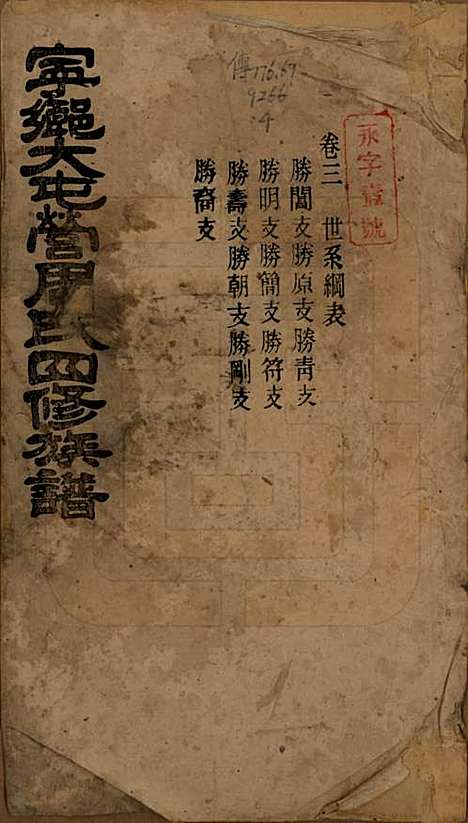 永字壹號
卷三　世系綱表
勝閶支勝原支勝青支
勝明支勝簡支勝符支
勝壽支勝朝支勝剛支
勝裔支
傳776.67
9266
4
寧鄉大屯營周氏四修族譜